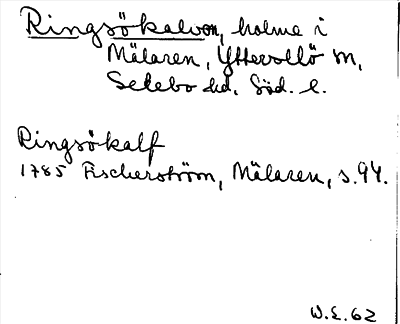 Ringsökalven, holme i
Mälaren, Ytterselö sn,
Selebo hd. Söd. l.
Ringsökalf
1785 Fischerström, Mälaren, s. 94.
W.E. 62